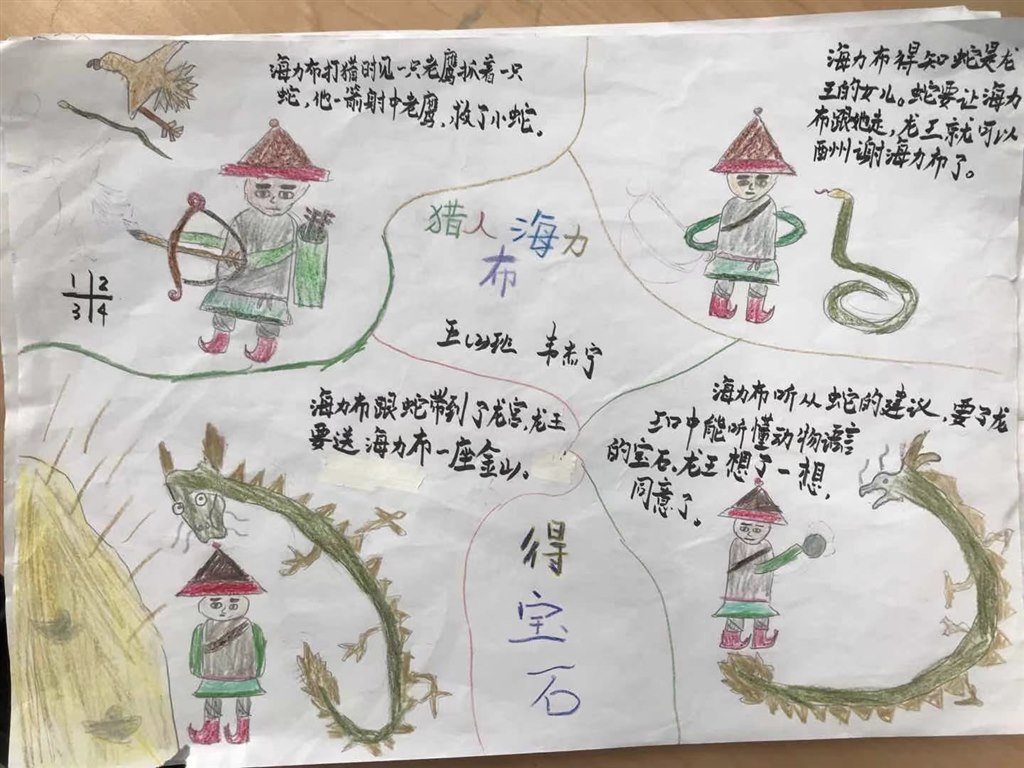 海力布打猎时见一只老鹰抓着一只
蛇，他一箭射中老鹰，救了小蛇。
海力布得知蛇是龙
王的女儿。蛇要让海力
布跟她走，龙王就可以
酬谢海力布了。
猎人海力
布
1 2
3 4
海力布跟蛇带到了龙宫，龙王
要送海力布一座金山。
海力布听从蛇的建议，要了龙
王口中能听懂动物语言
的宝石。龙王想了一想，
同意了。
得
宝
石